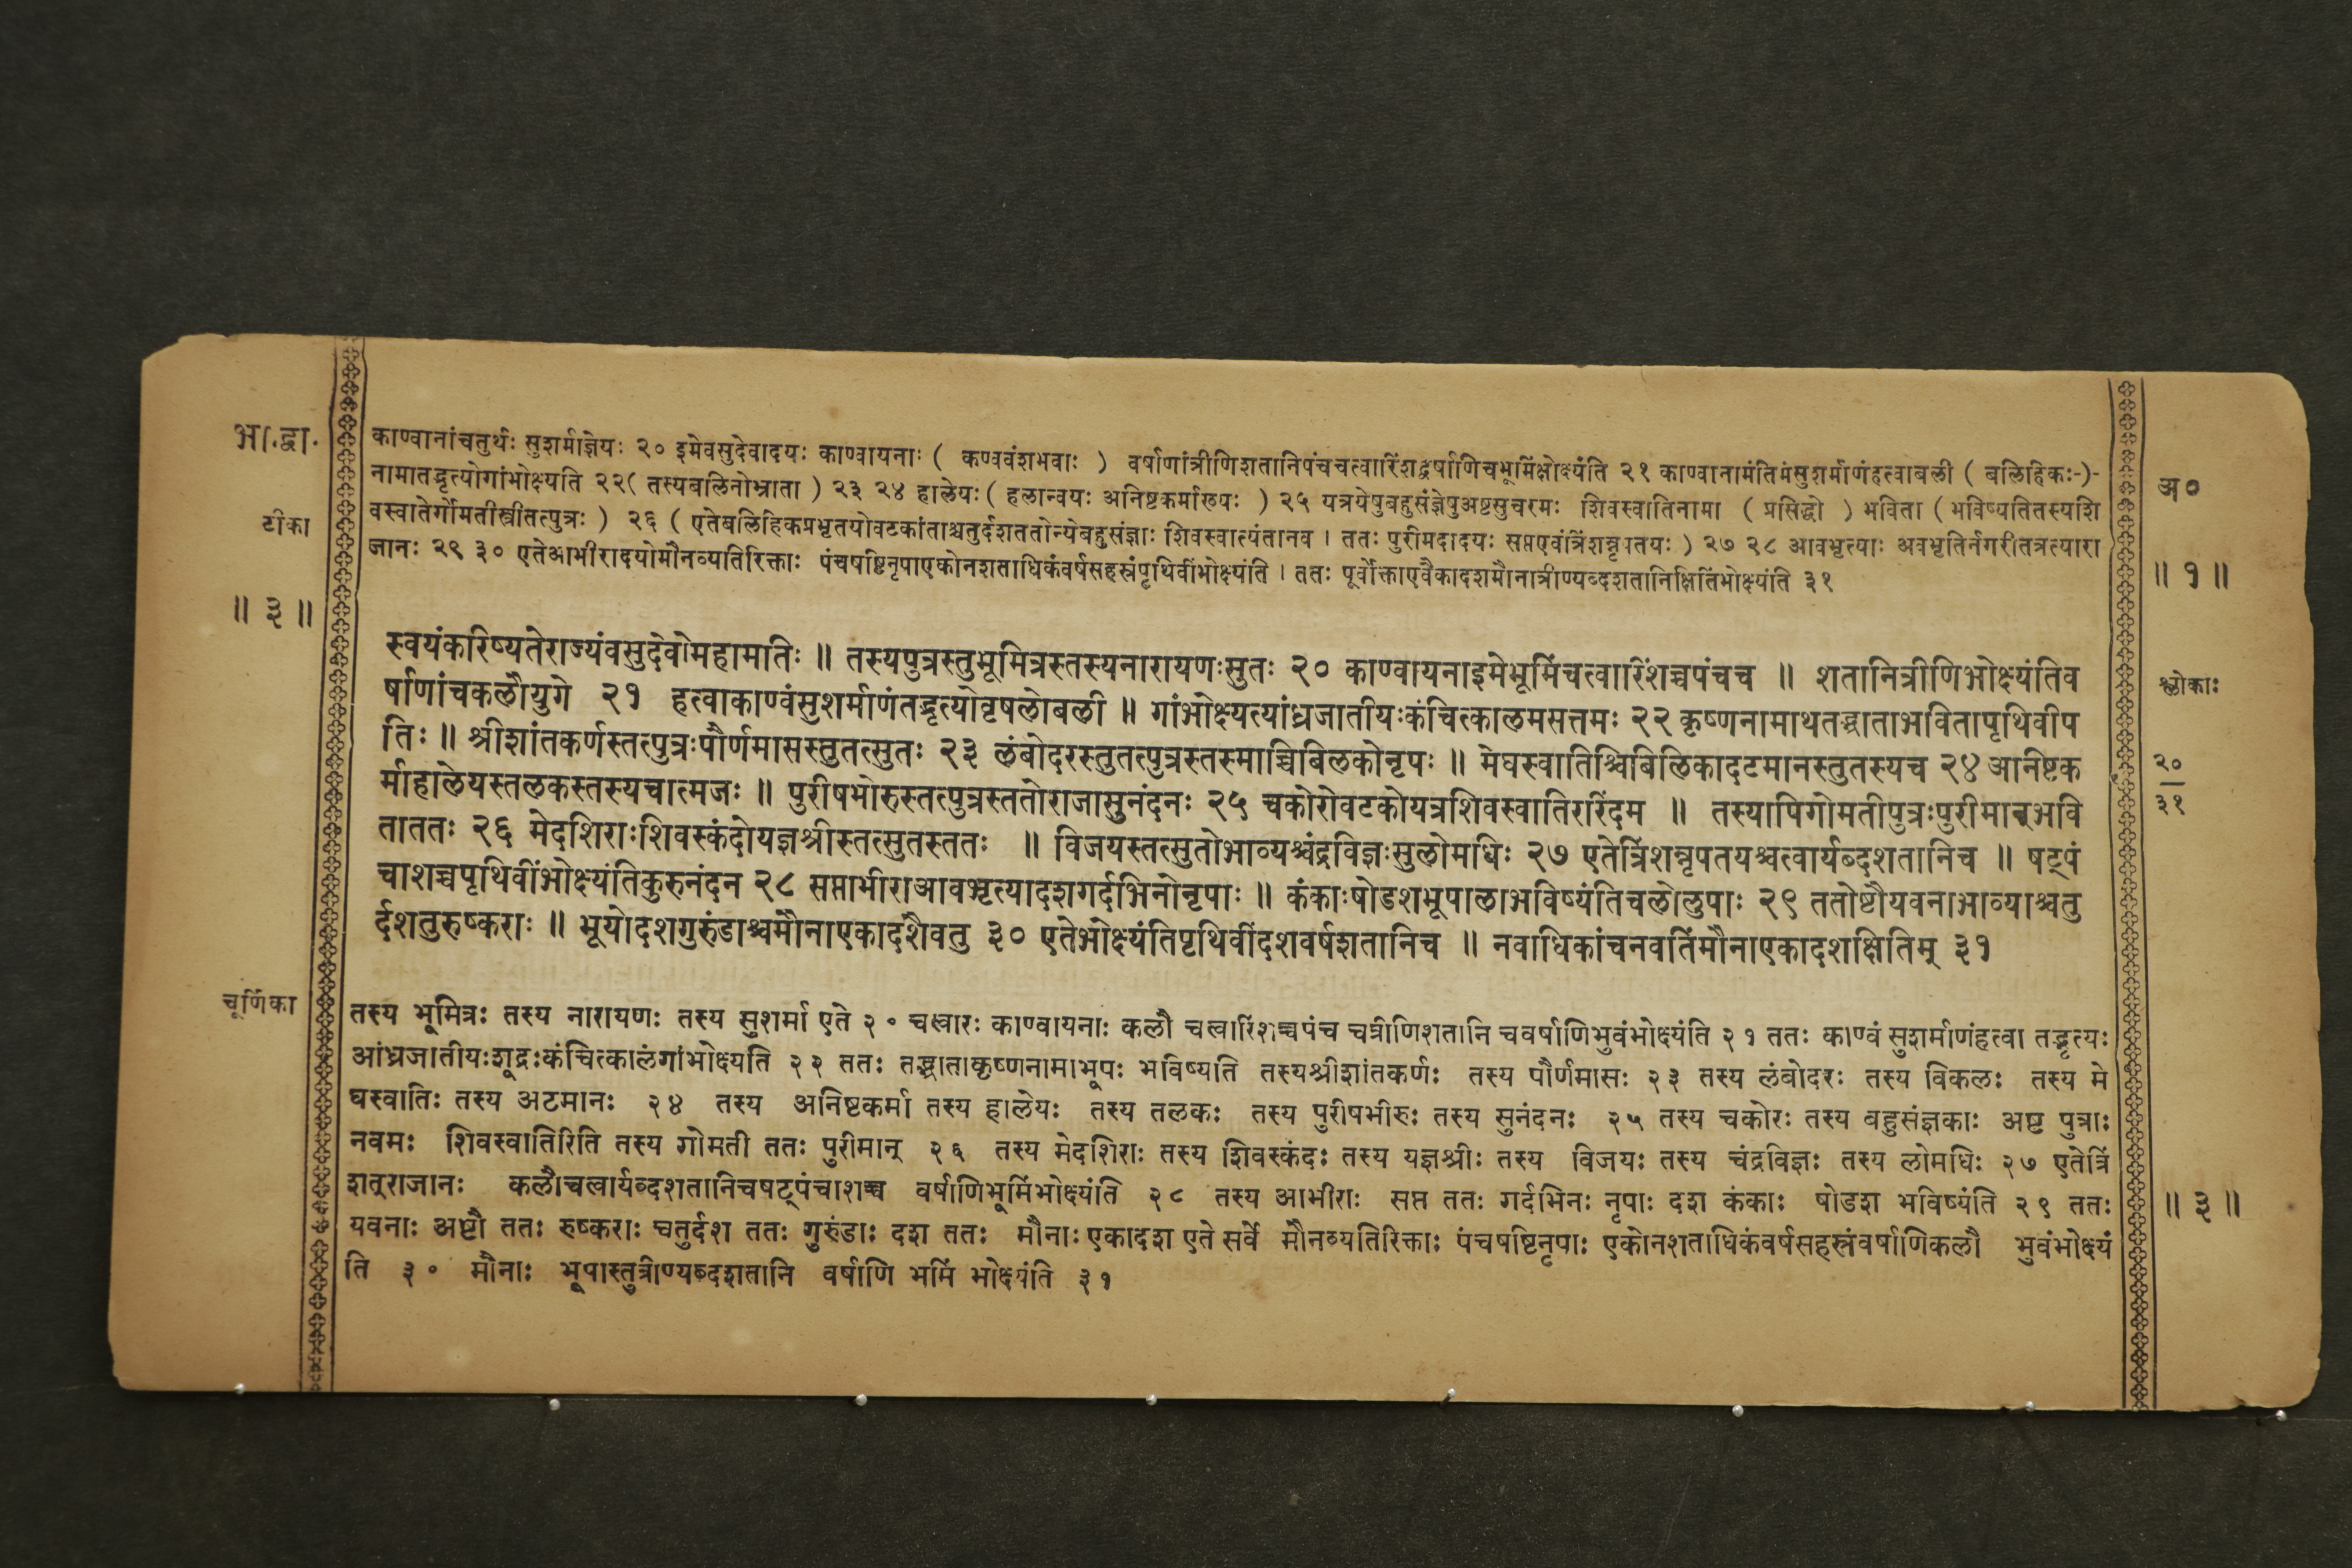 भा.द्वा.
टीका
॥ ३ ॥
काण्वानांचतुर्थः सुशर्माज्ञेयः २० इमेवसुदेवादयः काण्वायनाः ( कण्ववंशभवाः ) वर्षाणांत्रीणिशतानिपंचचत्वारिंशद्वर्षाणिचभूमिंभोक्ष्यंति २१ काण्वानामंतिमंसुशर्माणंहत्वाबली ( बलिहिकः-)-
नामातद्भृत्योगांभोक्ष्यति २२( तस्यबलिनोभ्राता ) २३ २४ हालेयः( हलान्वयः अनिष्टकर्मारूयः ) २५ यत्रयेपुबहुसंज्ञेपुअष्टसुचरमः शिवस्वातिनामा ( प्रसिद्धो ) भविता ( भविष्यतितस्यशि
वस्वातेर्गोमतीस्त्रीतत्पुत्रः ) २६ ( एतेबलिहिकप्रभृतयोवटकांताश्चतुर्दशततोन्येबहुसंज्ञाः शिवस्वात्यंतानव । ततः पुरीमदादयः सप्तएवंत्रिंशन्नृपतयः ) २७ २८ आवभृत्याः अवभृतिर्नगरीतत्रत्यारा
जानः २९ ३० एतेआभीरादयोमौनव्यतिरिक्ताः पंचषष्टिनृपाएकोनशताधिकंवर्षसहस्रंपृथिवींभोक्ष्यंति । ततः पूर्वोक्ताएवैकादशमौनात्रीण्यब्दशतानिक्षितिंभोक्ष्यंति ३१
स्वयंकरिष्यतेराज्यंवसुदेवोमहामतिः ॥ तस्यपुत्रस्तुभूमित्रस्तस्यनारायणःसुतः २० काण्वायनाइमेभूमिंचत्वारिंशच्चपंचच ॥ शतानित्रीणिभोक्ष्यंतिव
र्षाणांचकलौयुगे २१ हत्वाकाण्वंसुशर्माणंतद्भृत्योवृषलोबली ॥ गांभोक्ष्यत्यांध्रजातीयःकंचित्कालमसत्तमः २२ कृष्णनामाथतद्भ्राताभवितापृथिवीप
तिः ॥ श्रीशांतकर्णस्तत्पुत्रःपौर्णमासस्तुतत्सुतः २३ लंबोदरस्तुतत्पुत्रस्तस्माच्चिबिलकोनृपः ॥ मेघस्वातिश्चिबिलिकादटमानस्तुतस्यच २४ आनिष्टक
र्माहालेयस्तलकस्तस्यचात्मजः ॥ पुरीषभीरुस्तत्पुत्रस्ततोराजासुनंदनः २५ चकोरोवटकोयत्रशिवस्वातिररिंदम ॥ तस्यापिगोमतीपुत्रःपुरीमान्भवि
ताततः २६ मेदशिराःशिवस्कंदोयज्ञश्रीस्तत्सुतस्ततः ॥ विजयस्तत्सुतोभाव्यश्चंद्रविज्ञःसुलोमधिः २७ एतेत्रिंशन्नृपतयश्चत्वार्यब्दशतानिच ॥ षट्पं
चाशच्चपृथिवींभोक्ष्यंतिकुरुनंदन २८ सप्ताभीराआवभृत्यादशगर्दभिनोनृपाः ॥ कंकाःषोडशभूपालाभविष्यंतिचलोलुपाः २९ ततोष्टौयवनाभाव्याश्चतु
र्दशतुरुष्कराः ॥ भूयोदशगुरुंडाश्चमौनाएकादशैवतु ३० एतेभोक्ष्यंतिपृथिवींदशवर्षशतानिच ॥ नवाधिकांचनवतिंमौनाएकादशक्षितिम् ३१
चूर्णिका
तस्य भूमित्रः तस्य नारायणः तस्य सुशर्मा एते २० चत्वारः काण्वायनाः कलौ चत्वारिंशच्चपंच चत्रीणिशतानि चवर्षाणिभुवंभोक्ष्यंति २१ ततः काण्वं सुशर्माणंहत्वा तद्भृत्यः
आंध्रजातीयःशूद्रःकंचित्कालंगांभोक्ष्यति २२ ततः तद्भ्राताकृष्णनामाभूपः भविष्यति तस्यश्रीशांतकर्णः तस्य पौर्णमासः २३ तस्य लंबोदरः तस्य विकलः तस्य मे
घस्वातिः तस्य अटमानः २४ तस्य अनिष्टकर्मा तस्य हालेयः तस्य तलकः तस्य पुरीषभीरुः तस्य सुनंदनः २५ तस्य चकोरः तस्य बहुसंज्ञकाः अष्ट पुत्राः
नवमः शिवस्वातिरिति तस्य गोमती ततः पुरीमान् २६ तस्य मेदशिराः तस्य शिवस्कंदः तस्य यज्ञश्रीः तस्य विजयः तस्य चंद्रविज्ञः तस्य लोमधिः २७ एतेत्रिं
शत्राजानः कलौचत्वार्यब्दशतानिचषट्पंचाशच्च वर्षाणिभूमिंभोक्ष्यंति २८ तस्य आभीराः सप्त ततः गर्दभिनः नृपाः दश कंकाः षोडश भविष्यंति २९ ततः
यवनाः अष्टौ ततः रुष्कराः चतुर्दश ततः गुरुंडाः दश ततः मौनाः एकादश एते सर्वे मौनव्यतिरिक्ताः पंचषष्टिनृपाः एकोनशताधिकंवर्षसहस्रंवर्षाणिकलौ भुवंभोक्ष्यं
ति ३० मौनाः भूपास्तुत्रीण्यब्दशतानि वर्षाणि भमिं भोक्ष्यंति ३१
अ०
॥ १ ॥
श्लोकाः
२०
३१
॥ ३ ॥